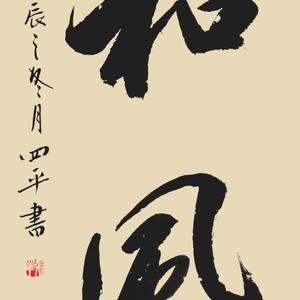 和風
辰之冬月四平書